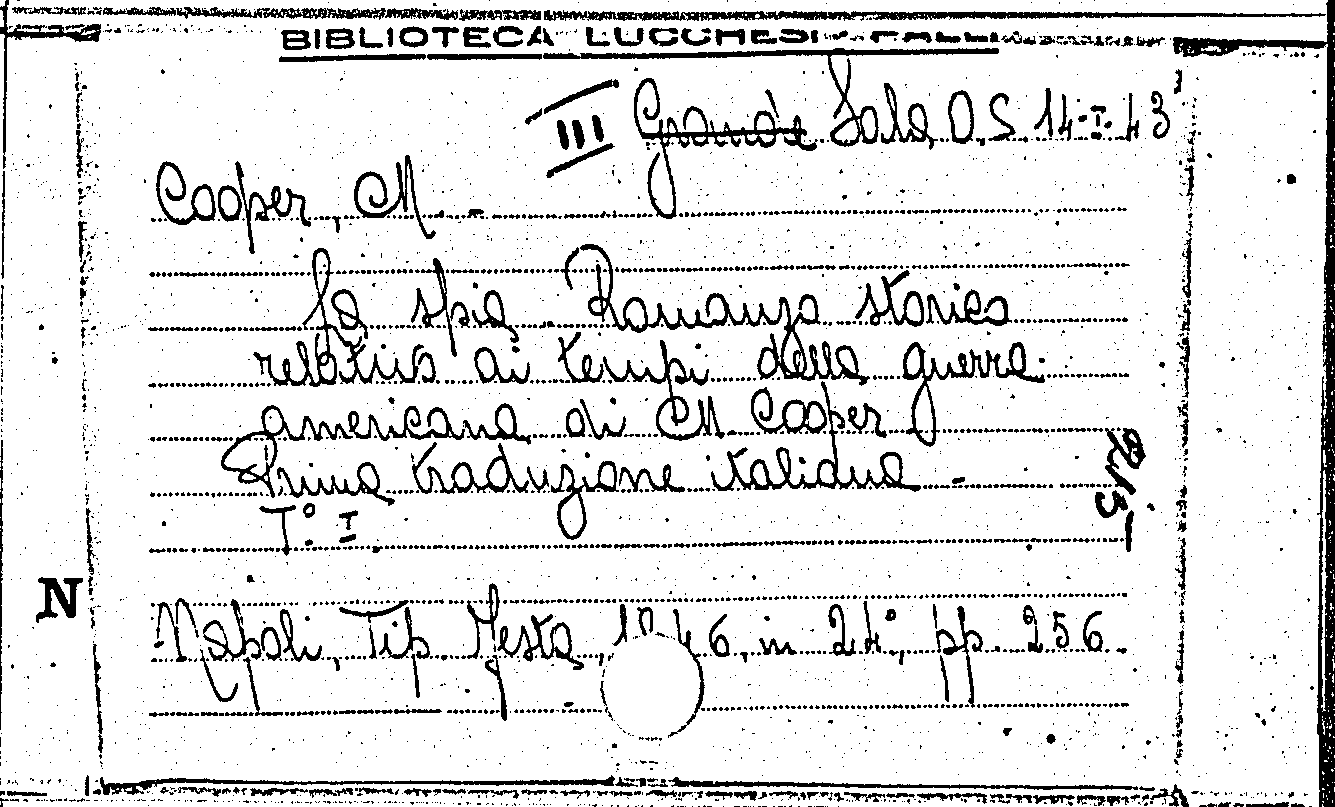 BIBLIOTECA LUCCHESI-PALLI
III Grande Sala D.S. 14-I-43
Cooper, M. -
La spia. Romanzo storico
relativo ai tempi della guerra
americana di M. Cooper
Prima traduzione italiana -
T.° I
N
Napoli, Tip. Festa, 1846, in 24°, pp. 256.